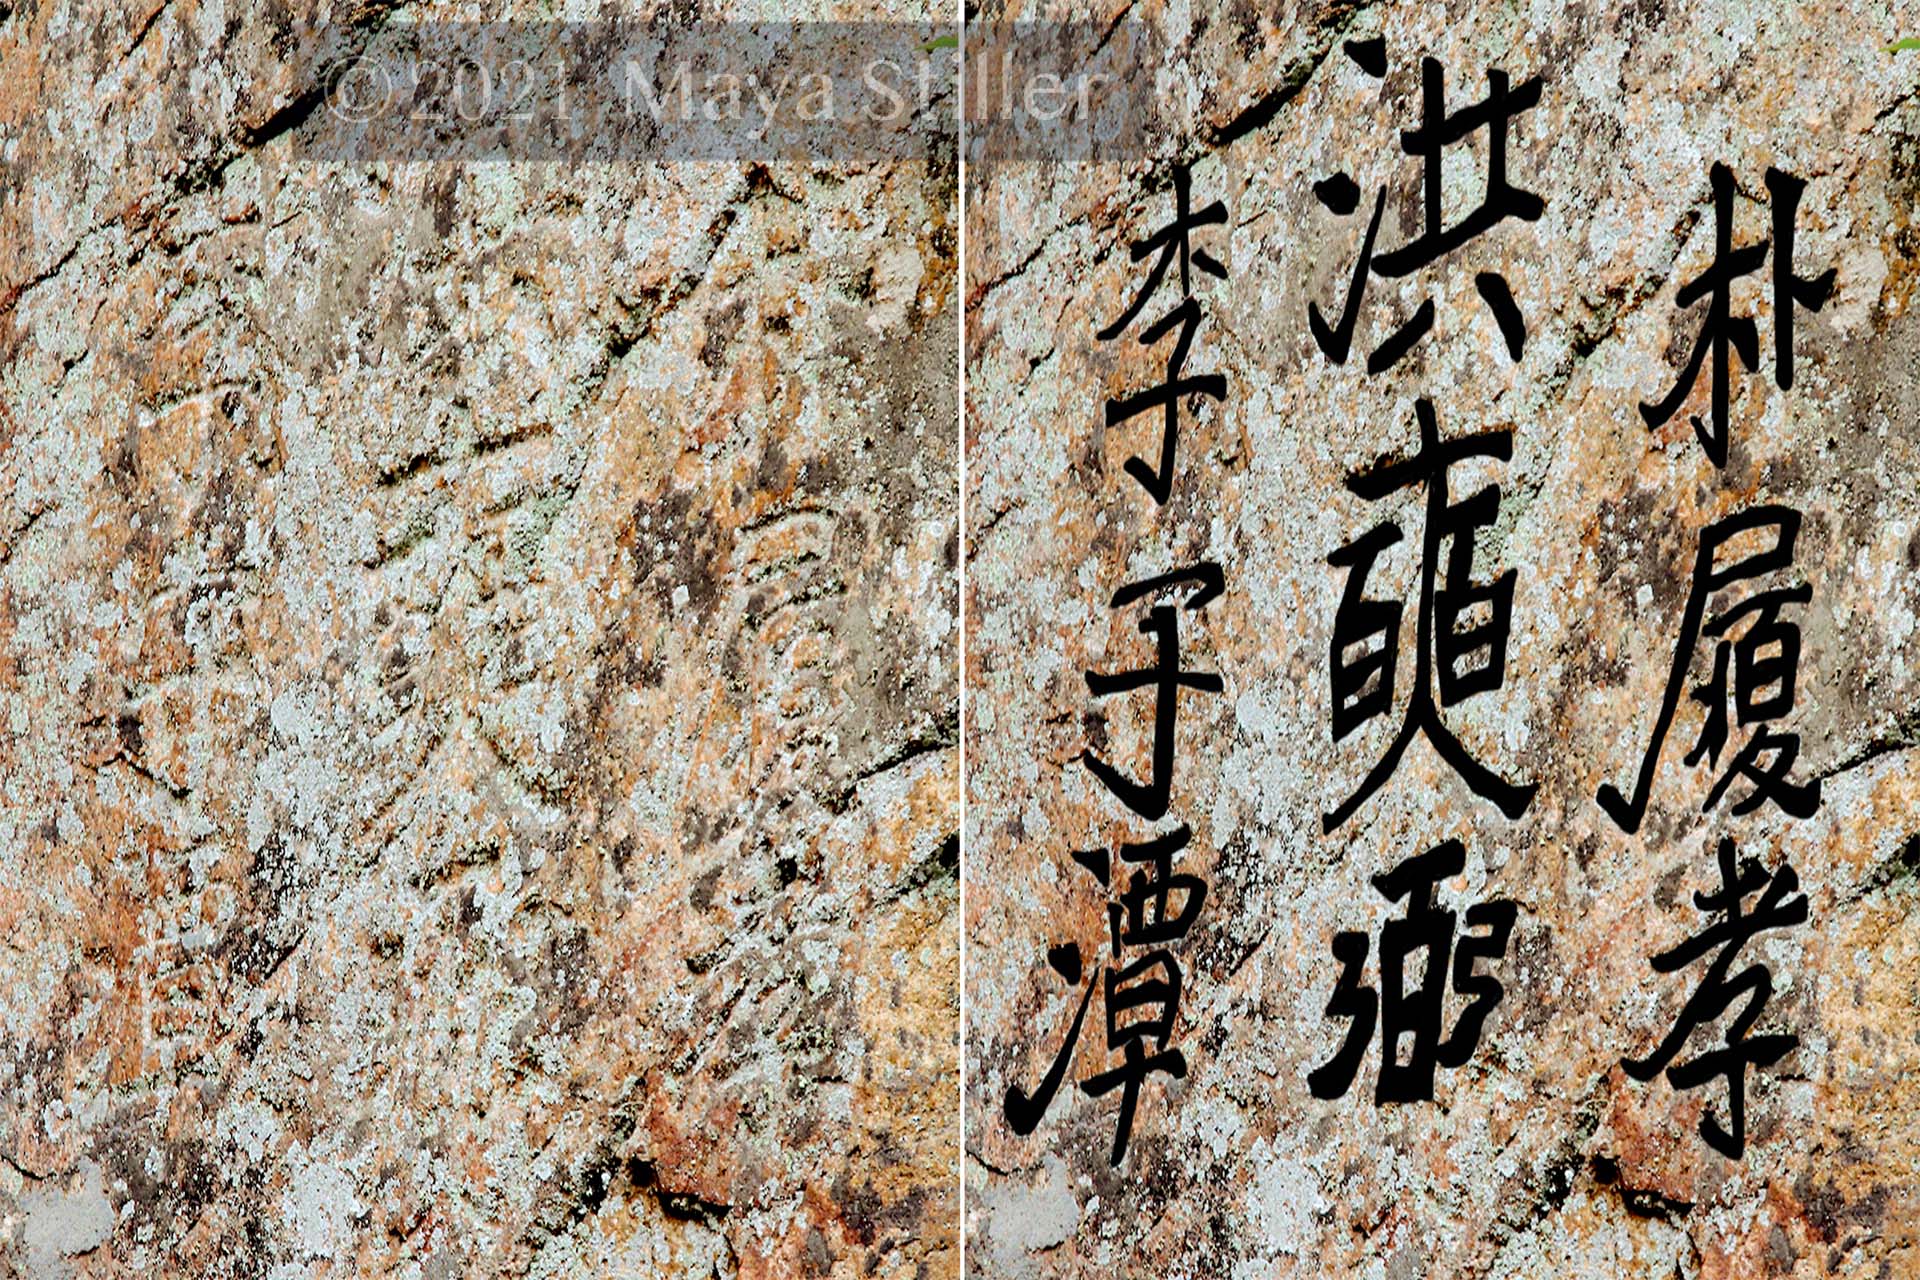 ©2021 Maya Stiller
朴履孝
洪奭弼
李潭